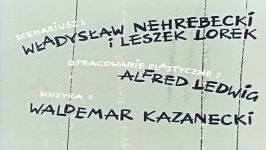 SCENARIUSZ:
WŁADYSŁAW NEHREBECKI
i LESZEK LOREK
OPRACOWANIE PLASTYCZNE:
ALFRED LEDWIG
MUZYKA:
WALDEMAR KAZANECKI